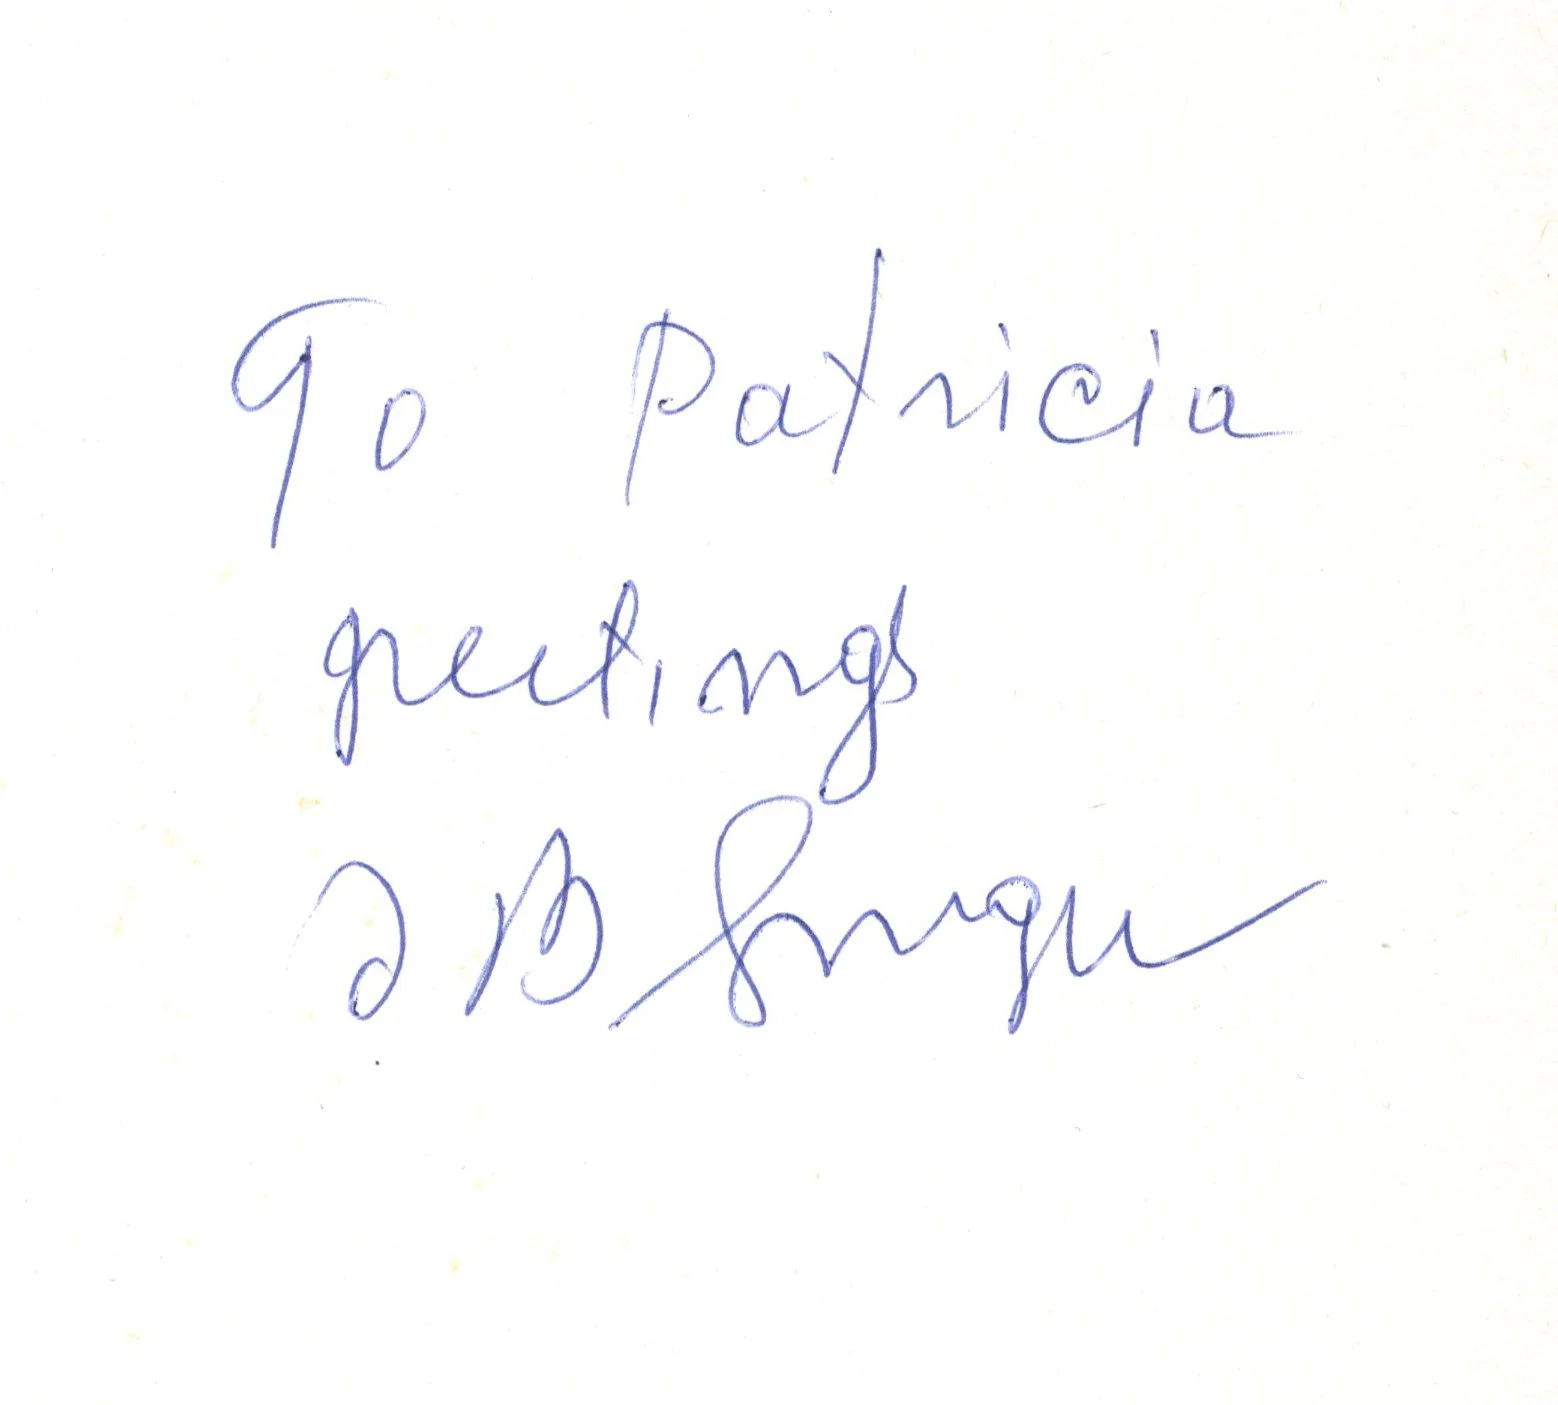 To Patricia
greetings
I B Singer